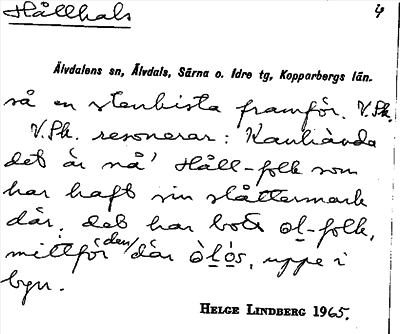 Hållhals 4
Älvdalens sn, Älvdals, Särna o. Idre tg, Kopparbergs län.
så en stenkista framför. V.Sk.
V.Sk. resonerar: Kanhända
det är nå' Håll-folk som
har haft sin slåttermark
där, det har bott ol-folk,
mittför den/där òlo̱s, uppe i
byn.
HELGE LINDBERG 1965.